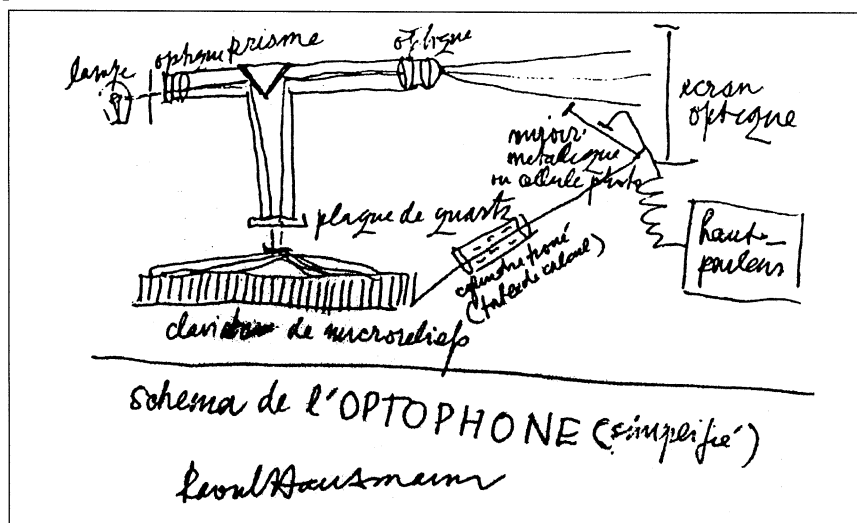 lampe
optique
prisme
optique
écran
optique
miroir
metallique
ou cellule photo
plaque de quartz
haut-
parleurs
cylindre troué
(tables de calcul)
clavier de microreliefs
schema de l'OPTOPHONE (simplifié)
Raoul Hausmann